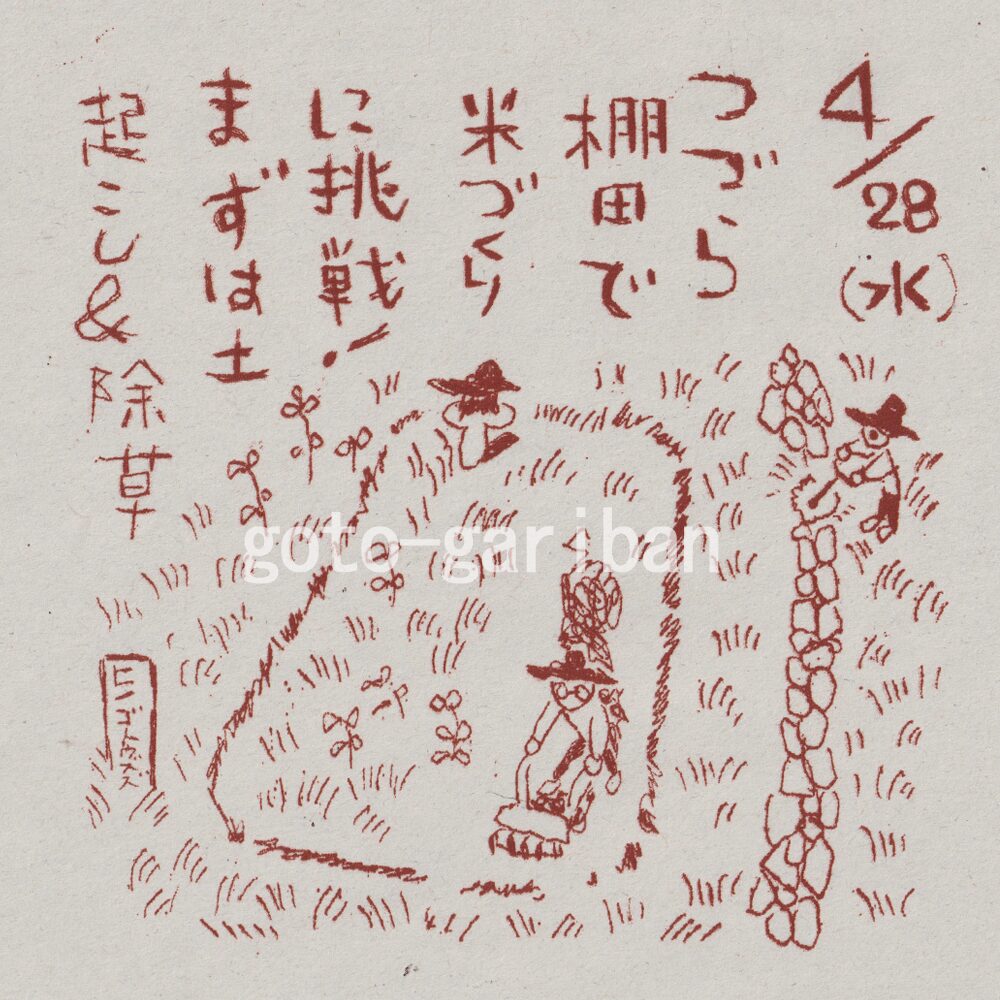 4/28
(水)
つづら
棚田で
米づくり
に挑戦!
まずは土
起こし&除草
goto-gariban